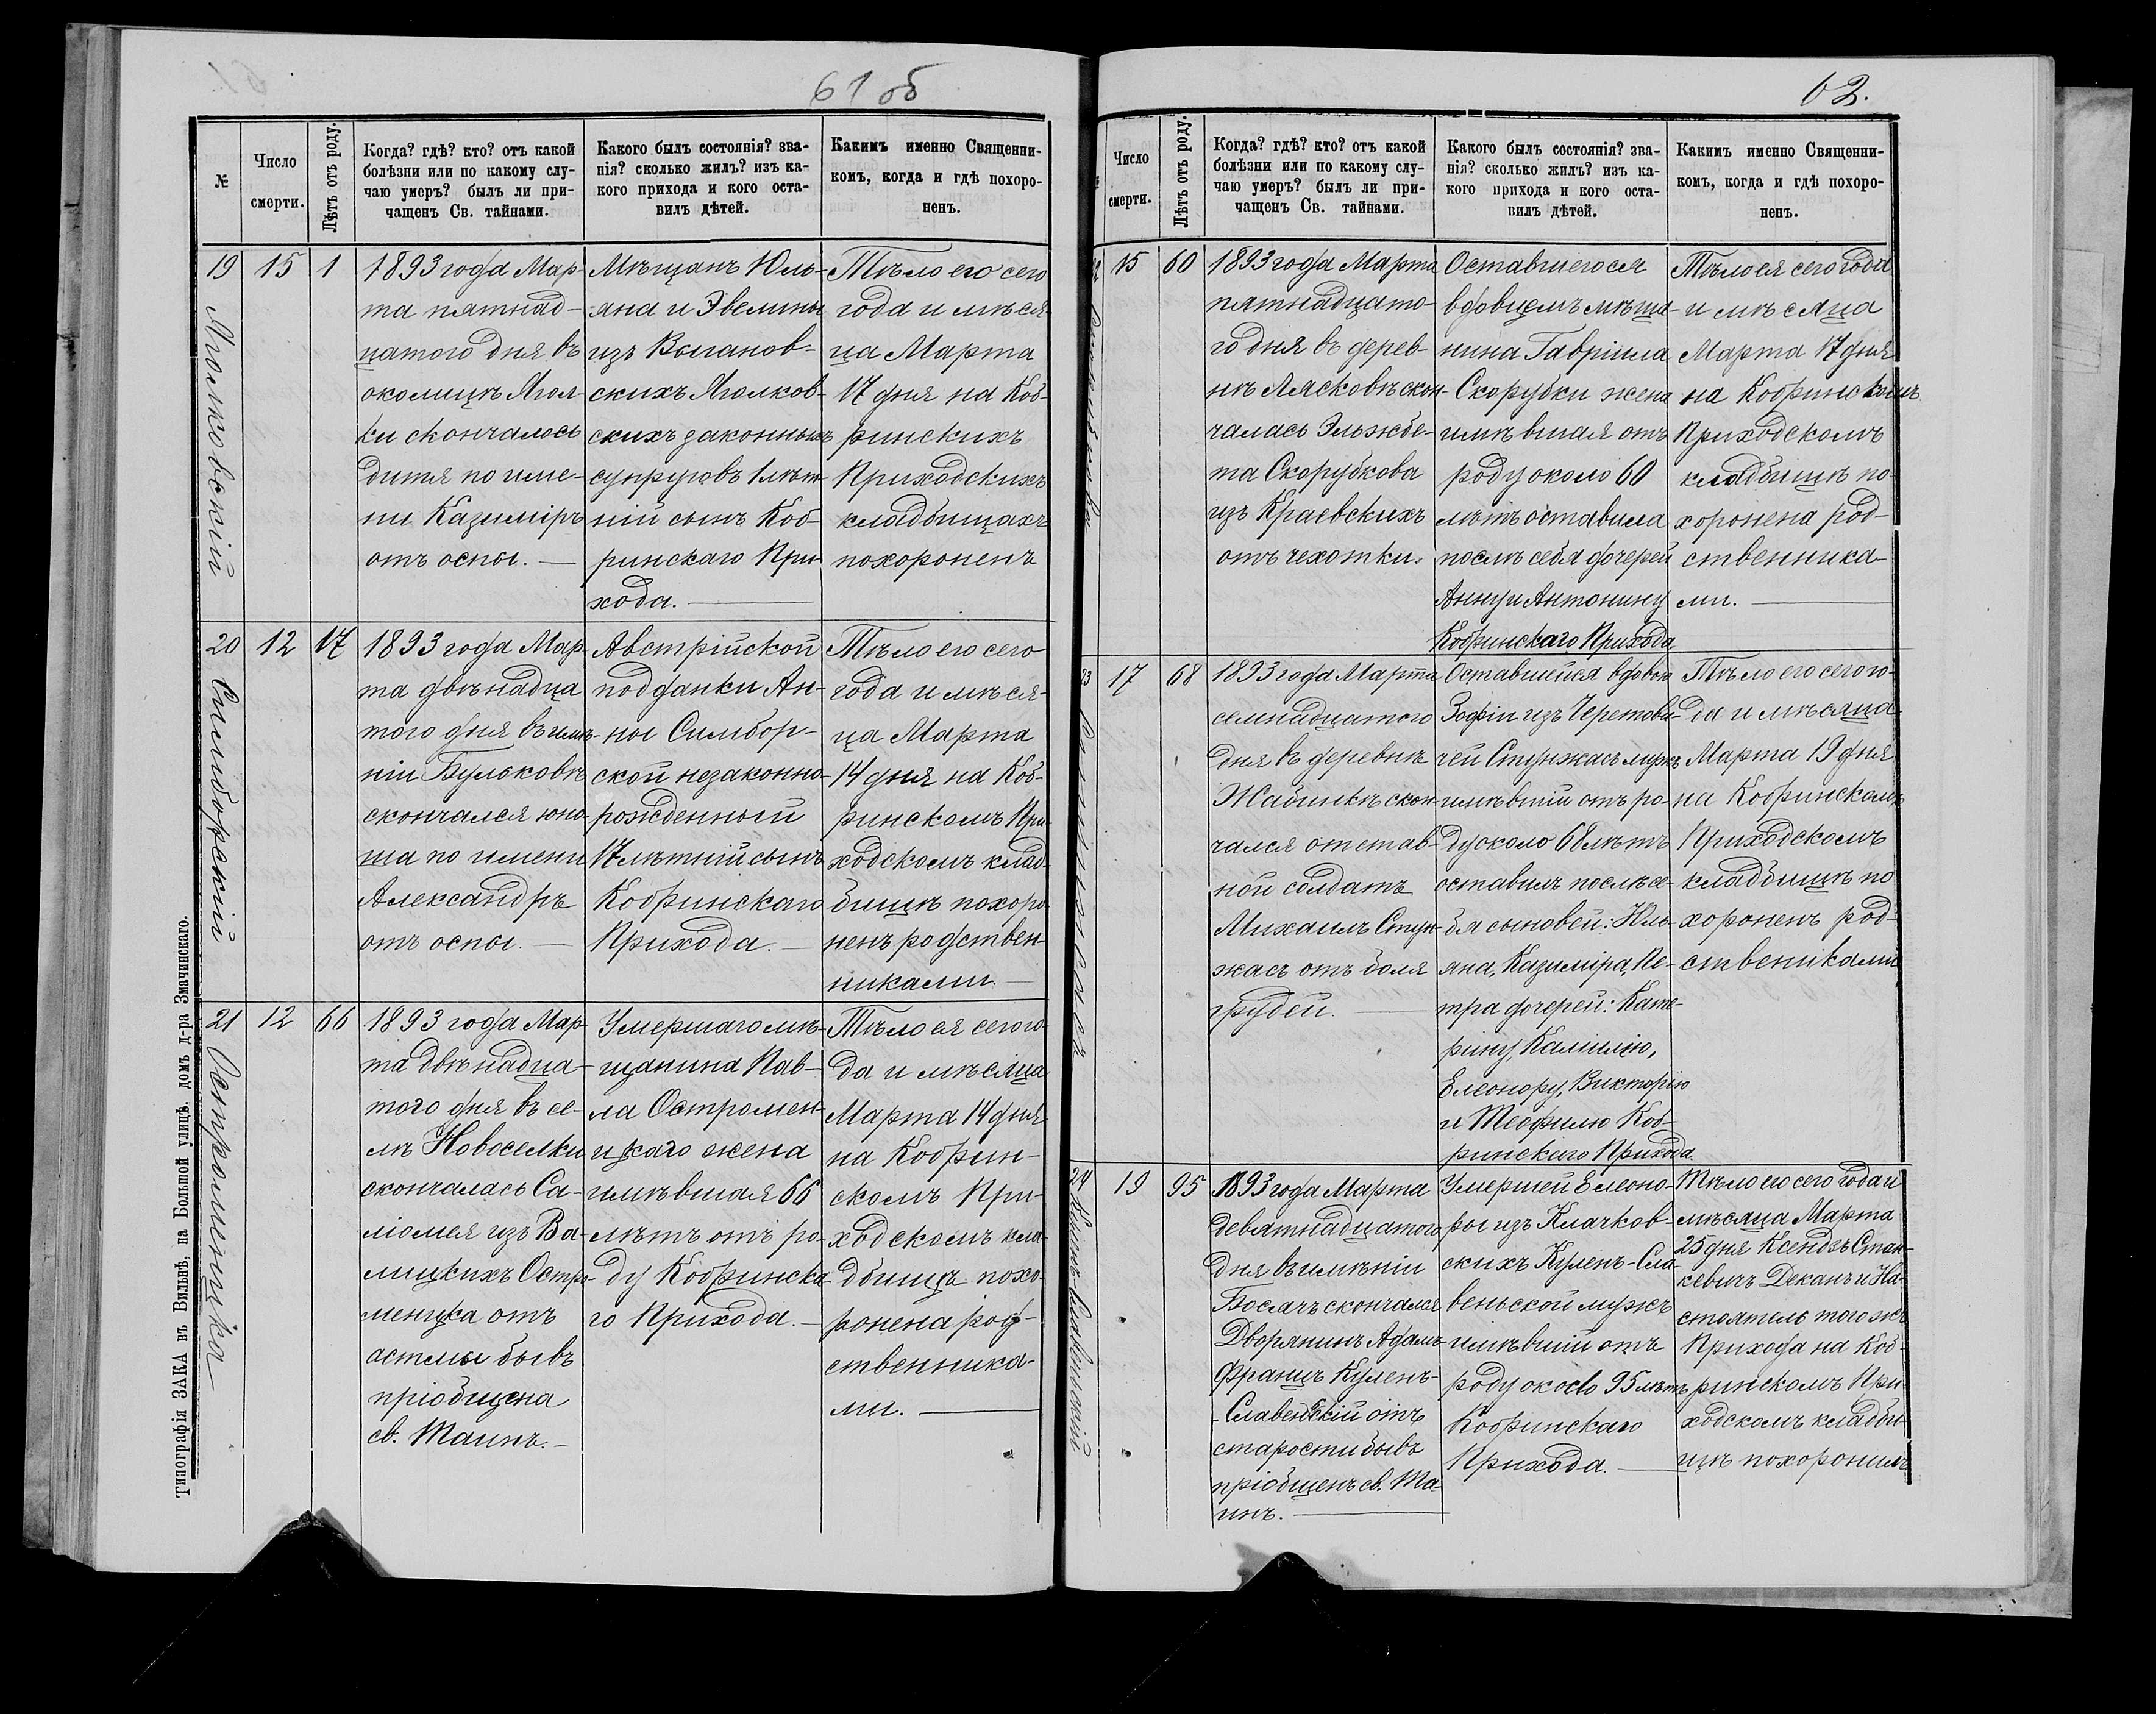 61 об
№
Число
смерти.
Лѣтъ отъ роду.
Когда? гдѣ? кто? отъ какой
болѣзни или по какому слу-
чаю умеръ? былъ ли при-
чащенъ Св. тайнами.
Какого былъ состоянія? зва-
нія? сколько жилъ? изъ ка-
кого прихода и кого оста-
вилъ дѣтей.
Какимъ именно Священни-
комъ, когда и гдѣ похоро-
ненъ.
19
15
1
1893 года Мар-
та пятнад-
цатого дня въ
околицѣ Ягол-
ки скончалось
дитя по име-
ни Казиміръ
отъ оспы. —
Мѣщанъ Юль-
яна и Эвелины
изъ
скихъ Яголков-
скихъ законныхъ
супруговъ 1 лѣт-
ній сынъ Коб-
ринскаго При-
хода. —
Тѣло его сего
года и мѣся-
ца Марта
17 дня на Коб-
ринскихъ
Приходскихъ
кладбищахъ
похороненъ
20
Симборскій
12
17
1893 года Мар-
та двѣнадца
того дня въ имѣ-
ніи Бульковѣ
скончался юно-
ша по имени
Александръ
отъ оспы. —
Австрійской
подданки Ан-
ны Симбор-
ской незаконно-
рожденный
17 лѣтній сынъ
Кобринскаго
Прихода. —
Тѣло его сего
года и мѣся-
ца Марта
14 дня на Коб-
ринскомъ При-
ходскомъ клад-
бищѣ похоро-
ненъ родствен-
никами. —
21
Остроменцка
12
66
1893 года Мар-
та двѣнадца-
того дня въ се-
лѣ Новоселки
скончалась Са-
ліомея изъ Ва-
лицкихъ Остро-
менцка отъ
астмы бывъ
пріобщена
св. Таинъ. —
Умершаго мѣ-
щанина Пав-
ла Остромен-
цкаго жена
имѣвшая 66
лѣтъ отъ ро-
ду Кобринска-
го Прихода. —
Тѣло ея сего го-
да и мѣсяца
Марта 14 дня
на Кобрин-
скомъ При-
ходскомъ кла-
дбищѣ похо-
ронена род-
ственника-
ми. —
Типографія ЗАКА въ Вильнѣ, на Большой улицѣ, домъ д-ра Змачинскаго.
62.
Число
смерти.
Лѣтъ отъ роду.
Когда? гдѣ? кто? отъ какой
болѣзни или по какому слу-
чаю умеръ? былъ ли при-
чащенъ Св. тайнами.
Какого былъ состоянія? зва-
нія? сколько жилъ? изъ ка-
кого прихода и кого оста-
вилъ дѣтей.
Какимъ именно Священни-
комъ, когда и гдѣ похоро-
ненъ.
15
60
1893 года Марта
пятнадцато-
го дня въ дерев-
нѣ Лясковѣ скон-
чалась Эльжбе-
та Скорубкова
изъ Краевскихъ
отъ чехотки.
Оставшегося
вдовцемъ мѣща-
нина Гавріила
Скорубки жена
имѣвшая отъ
роду около 60
лѣтъ оставила
послѣ себя дочерей
Анну и Антонину
Кобринскаго Прихода
Тѣло ея сего года
и мѣсяца
Марта 17 дня
на Кобринскомъ
Приходскомъ
кладбищѣ по-
хоронена род-
ственника-
ми. —
23
17
68
1893 года Марта
семнадцатого
дня въ деревнѣ
Жабинкѣ скон-
чался отстав-
ной солдатъ
Михаилъ Стун-
жасъ отъ боля
грудей. —
Оставшийся вдовою
Зофіи изъ Черетови-
чей Стунжасъ мужъ
имѣвшій отъ ро-
ду около 68 лѣтъ
оставилъ послѣ се-
бя сыновей: Юль-
яна, Казиміра, Пе-
тра дочерей: Кате-
рину, Камилію,
Елеонору, Викторію
и Теофилю Коб-
ринскаго Прихода.
Тѣло его сего го-
да и мѣсяца
Марта 19 дня
на Кобринскомъ
Приходскомъ
кладбищѣ по
хороненъ род-
ствениками
24
19
95
1893 года Марта
девятнадцатого
дня въ имѣніи
Босячъ скончался
Дворянинъ Адамъ-
Францъ Куленъ-
-Славенскій отъ
старости бывъ
пріобщенъ св. Та-
инъ. —
Умершей Елеоно-
ры изъ Клачков-
скихъ Куленъ-Сла-
веньской мужъ
имѣвшій отъ
роду около 95 лѣтъ
Кобринскаго
Прихода. —
Тѣло его сего года и
мѣсяца Марта
25 дня Ксендзъ Стан-
кевичъ Деканъ и На-
стоятель того же
Прихода на Коб-
ринскомъ При-
ходскомъ кладби-
щѣ похоронилъ